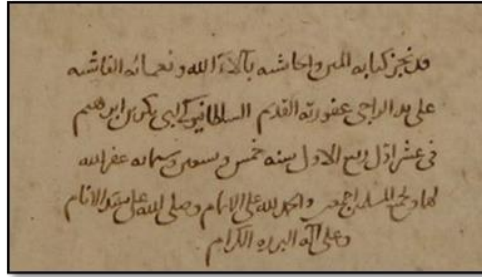 قد نجز كتابه المتن والحاشيه بآلاء الله ونعمائه الفاشيه
على يد الراجي عفو ربه القديم السلطانيوكي ابي بكر بن ابرهيم
في عشر اول ربيع الاول سنه خمس وسبعين وسمايه غفر الله
لهما ولجميع المسلمين اجمعين والحمد لله على الاتمام وصلى الله على سيد الانام
وعلى آله البرره الكرام